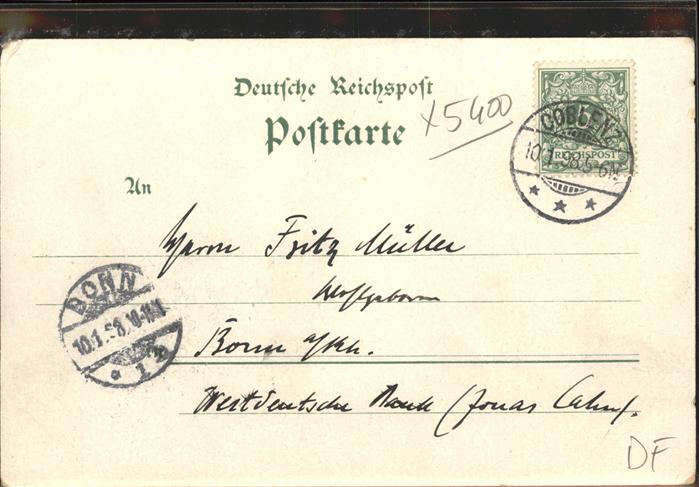 Deutsche Reichspost
Postkarte
x5400
COBLENZ
10.1.98.5-6N.
REICHSPOST
An
Herrn Fritz Müller
Wohlgeboren
Bonn a/Rh.
Westdeutsche Bank (Jonas Cahn).
BONN
10.1.98.10-11N
1
DF